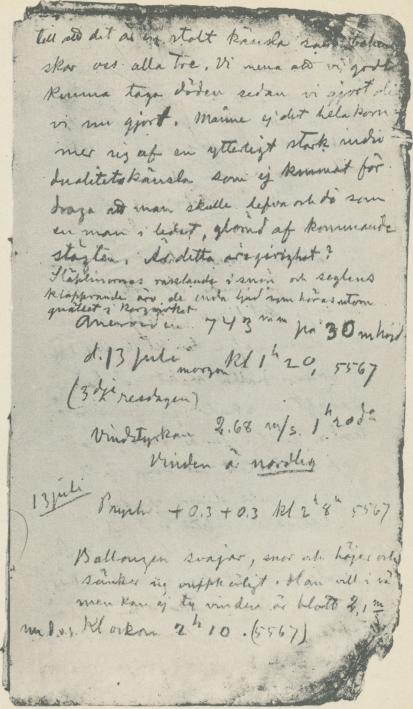 till att det är en stolt känsla som behar-
skar oss alla tre. Vi mena att vi godt
kunna taga döden sedan vi gjort det
vi nu gjort. Månne ej det hela kom
mer sig af en ytterligt stark indivi
dualitetskänsla som ej kunnat för
draga att man skulle lefva och dö som
en man i ledet, glömd af kommande
släkten. Är detta ärogirighet?
Släplinornas rasslande i snön och seglens
klapprande äro de enda ljud som höras utom
gnället i korgvirket
Aneroiden 743 mm på 30 m höjd
d. 13 juli morgon kl 1h 20, 5567
(3dje resdagen)
Vindstyrkan 2.68 m/s. 1h 20
Vinden är nordlig
13 juli
Psychr +0.3 +0.3 kl 2h 8m 5567
Ballongen svajar, snor och höjer och
sänker sig oupphörligt. Han vill i väg
men kan ej ty vinden är blott 2,1 m
nu d.v.s. klockan 2h 10. (5567)